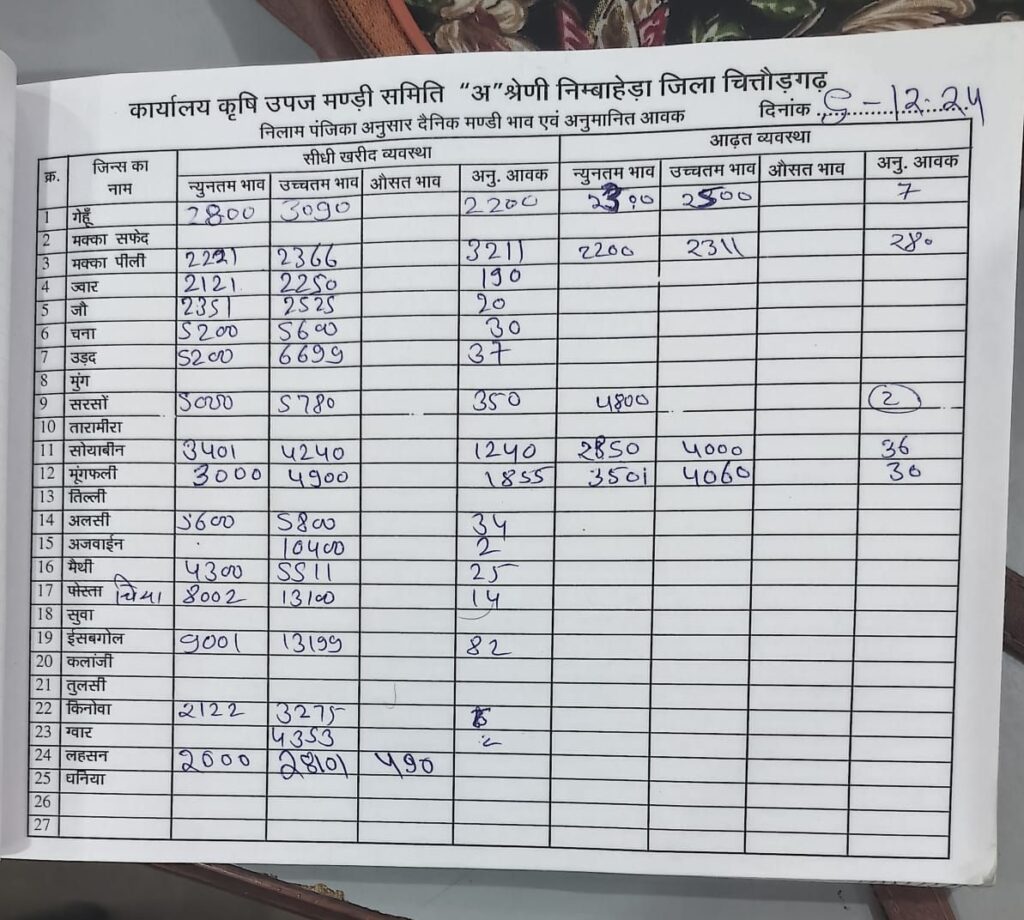 कार्यालय कृषि उपज मण्डी समिति "अ" श्रेणी निम्बाहेड़ा जिला चित्तौड़गढ़
निलाम पंजिका अनुसार दैनिक मण्डी भाव एवं अनुमानित आवक दिनांक 9-12-24
क्र. जिन्स का नाम सीधी खरीद व्यवस्था आढ़त व्यवस्था
न्युनतम भाव उच्चतम भाव औसत भाव अनु. आवक न्युनतम भाव उच्चतम भाव औसत भाव अनु. आवक
1 गेहूँ 2800 3090 2200 2500 7
2 मक्का सफेद
3 मक्का पीली 2221 2366 3211 2200 2311 280
4 ज्वार 2121 2250 190
5 जौ 2351 2525 20
6 चना 5200 5600 30
7 उड़द 5200 6699 37
8 मुंग
9 सरसों 5000 5780 350 4800 2
10 तारामीरा
11 सोयाबीन 3401 4240 1240 2850 4000 36
12 मूंगफली 3000 4900 1855 3501 4060 30
13 तिल्ली
14 अलसी 5600 5800 34
15 अजवाईन 10400 2
16 मैथी 4300 5511 25
17 पोस्ता चिया 8002 13100 14
18 सुवा
19 ईसबगोल 9001 13199 82
20 कलांजी
21 तुलसी
22 किनोवा 2122 3275
23 ग्वार 4353 2
24 लहसन 2000 490
25 धनिया
26
27